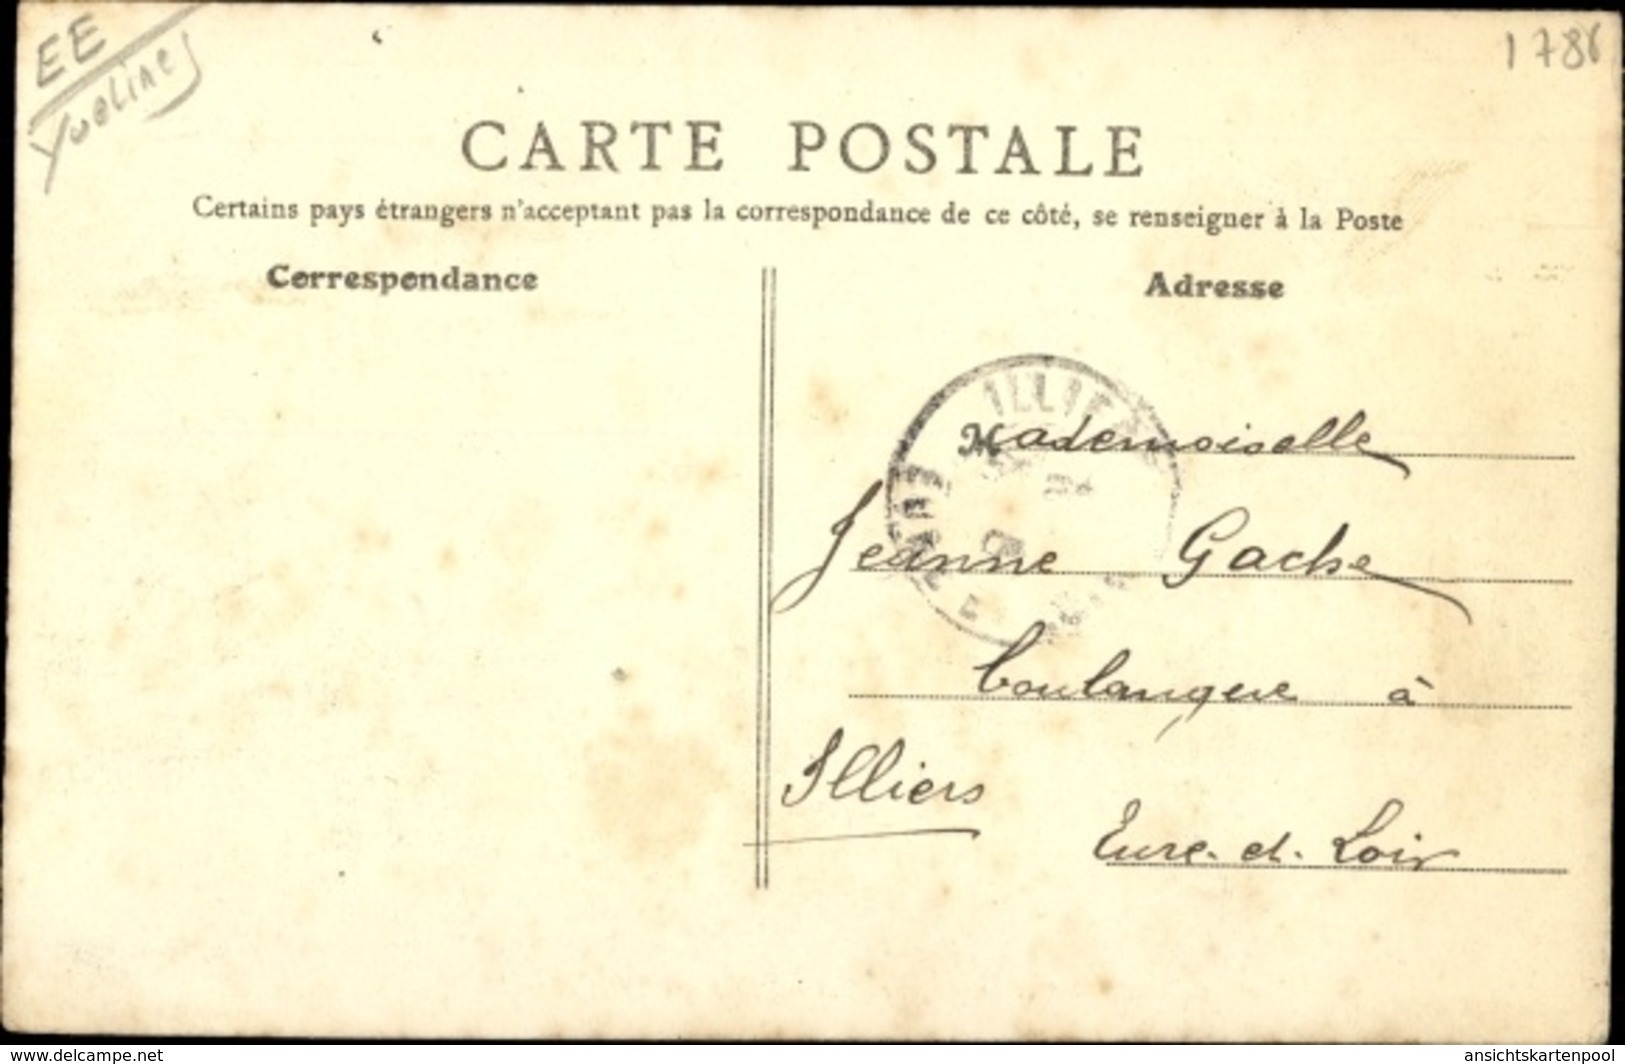 EE
Yvelines
1786
CARTE POSTALE
Certains pays étrangers n'acceptant pas la correspondance de ce côté, se renseigner à la Poste
Correspondance
Adresse
ILLIERS
Mademoiselle
Jeanne Gache
boulangere à
Illiers
Eure-et-Loir
www.delcampe.net
ansichtskartenpool